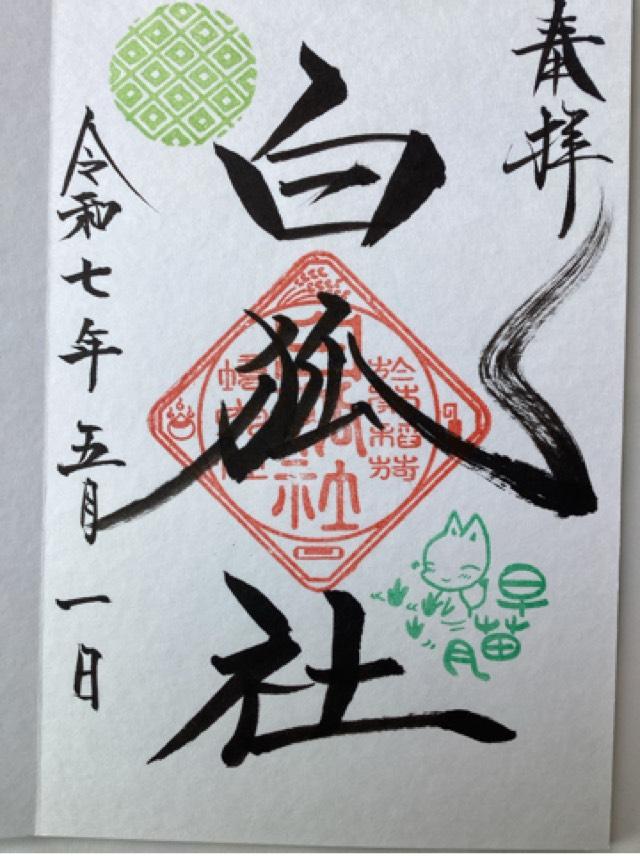 奉拝
白狐社
令和七年五月一日
早苗月